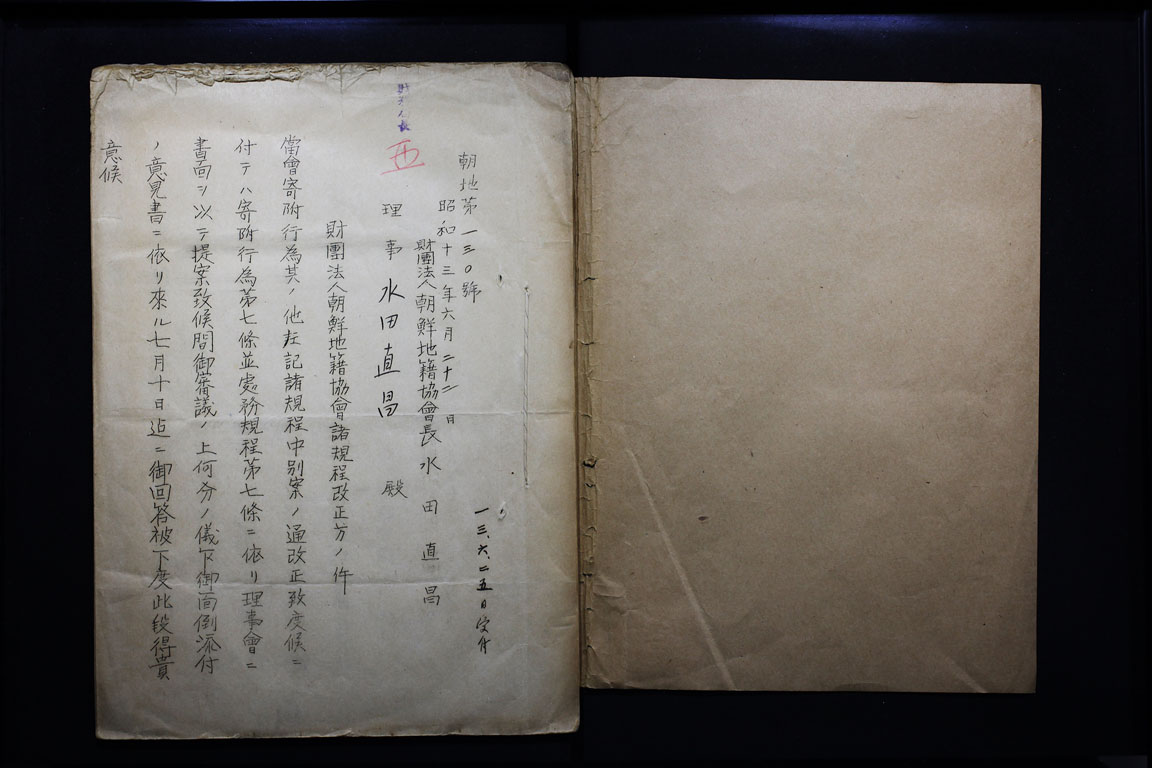 朝地第一三〇號
昭和十三年六月二十二日
財團法人朝鮮地籍協會長 水田直昌
理事 水田直昌 殿
財團法人朝鮮地籍協會諸規程改正方ノ件
當會寄附行為其ノ他左記諸規程中別案ノ通改正致度候ニ
付テハ寄附行為第七條並處務規程第七條ニ依リ理事會ニ
書面ヲ以テ提案致候間御審議ノ上何分ノ儀乍御面倒添付
ノ意見書ニ依リ來ル七月十日迄ニ御回答被下度此段得貴
意候
一三、六、二五日受付